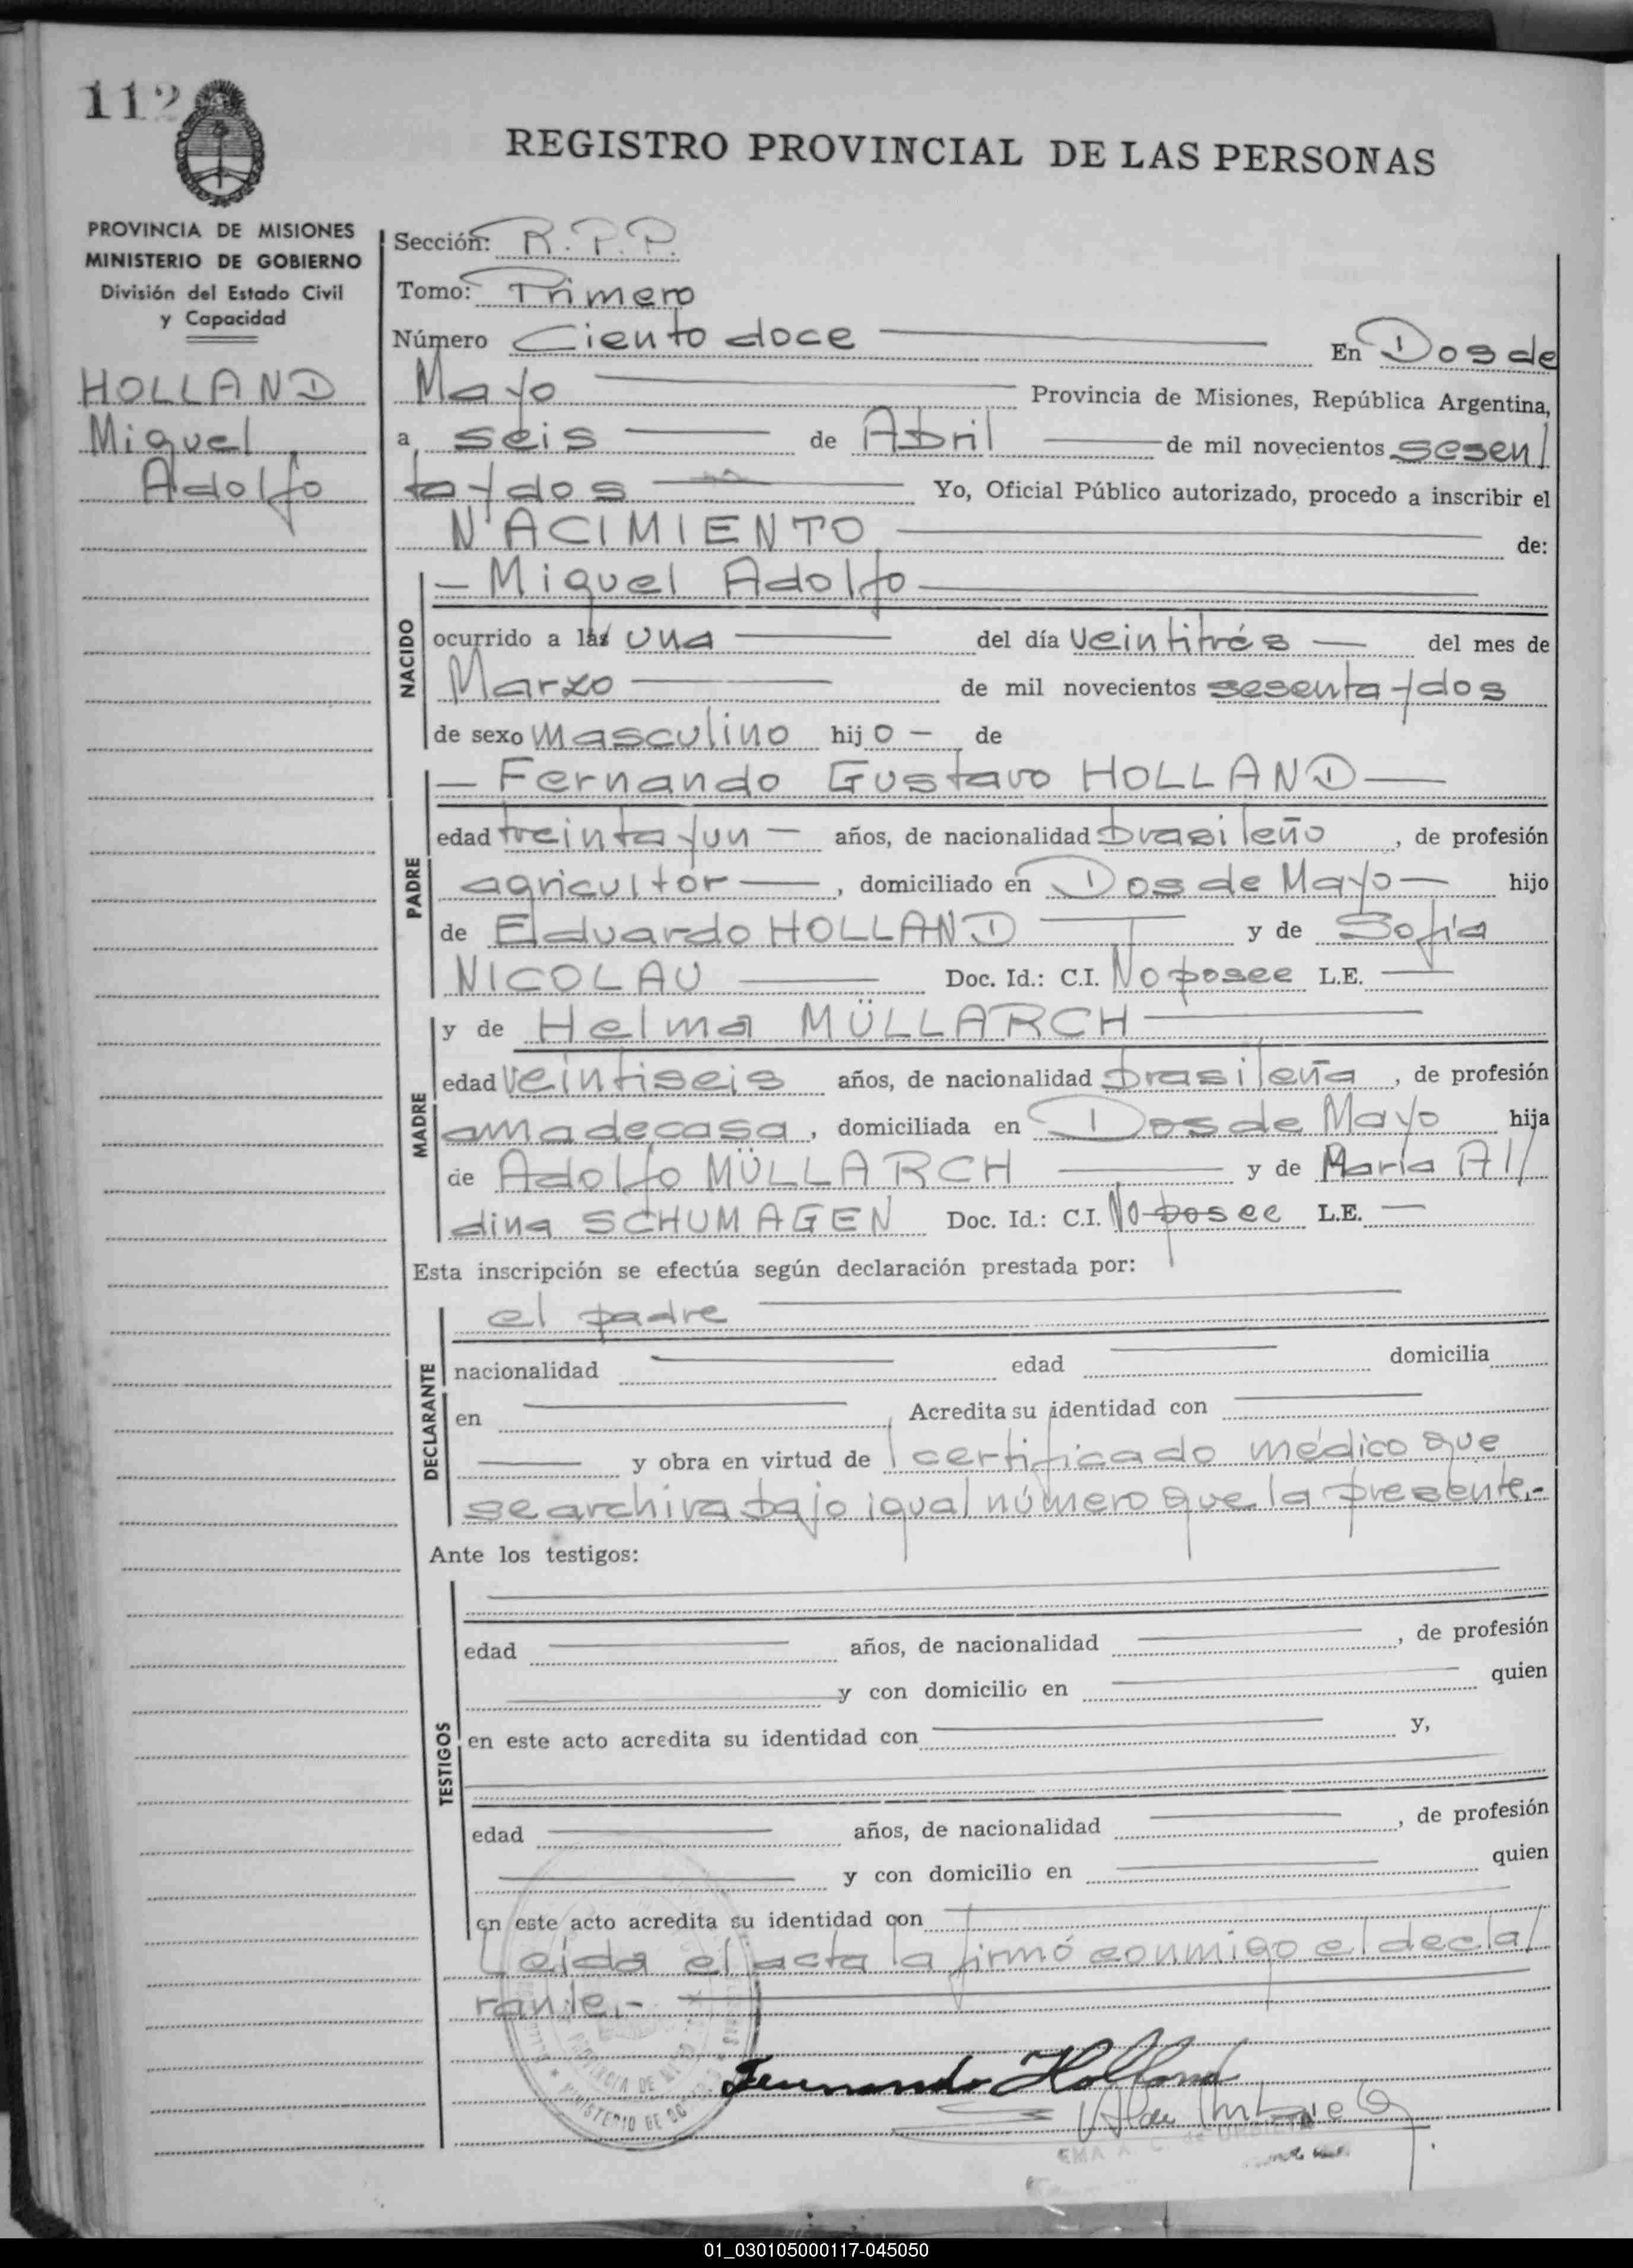 112
REGISTRO PROVINCIAL DE LAS PERSONAS
PROVINCIA DE MISIONES
MINISTERIO DE GOBIERNO
División del Estado Civil
y Capacidad
HOLLAND
Miguel
Adolfo
Sección: R.P.P.
Tomo: Primero
Número Ciento doce En Dos de
Mayo Provincia de Misiones, República Argentina,
a seis de Abril de mil novecientos sesen/
ta y dos Yo, Oficial Público autorizado, procedo a inscribir el
NACIMIENTO de:
NACIDO
— Miguel Adolfo
ocurrido a las una del día veintitrés — del mes de
Marzo de mil novecientos sesenta y dos
de sexo masculino hijo — de
PADRE
— Fernando Gustavo HOLLAND —
edad treinta y un — años, de nacionalidad brasileño, de profesión
agricultor —, domiciliado en Dos de Mayo — hijo
de Eduardo HOLLAND y de Sofía
NICOLAU Doc. Id.: C.I. No posee L.E. —
MADRE
y de Helma MÜLLARCH
edad veintiseis años, de nacionalidad brasileña, de profesión
ama de casa, domiciliada en Dos de Mayo hija
de Adolfo MÜLLARCH y de María Al/
dina SCHUMAGEN Doc. Id.: C.I. No posee L.E. —
Esta inscripción se efectúa según declaración prestada por:
DECLARANTE
el padre
nacionalidad edad domicilia
en Acredita su identidad con
y obra en virtud de certificado médico que
se archiva bajo igual número que la presente.-
Ante los testigos:
TESTIGOS
edad años, de nacionalidad , de profesión
y con domicilio en quien
en este acto acredita su identidad con y,
edad años, de nacionalidad , de profesión
y con domicilio en quien
en este acto acredita su identidad con
Leída el acta la firmó conmigo el decla/
rante.-
Fernando Holland
PROVINCIA DE
MINISTERIO DE GO
01_030105000117-045050